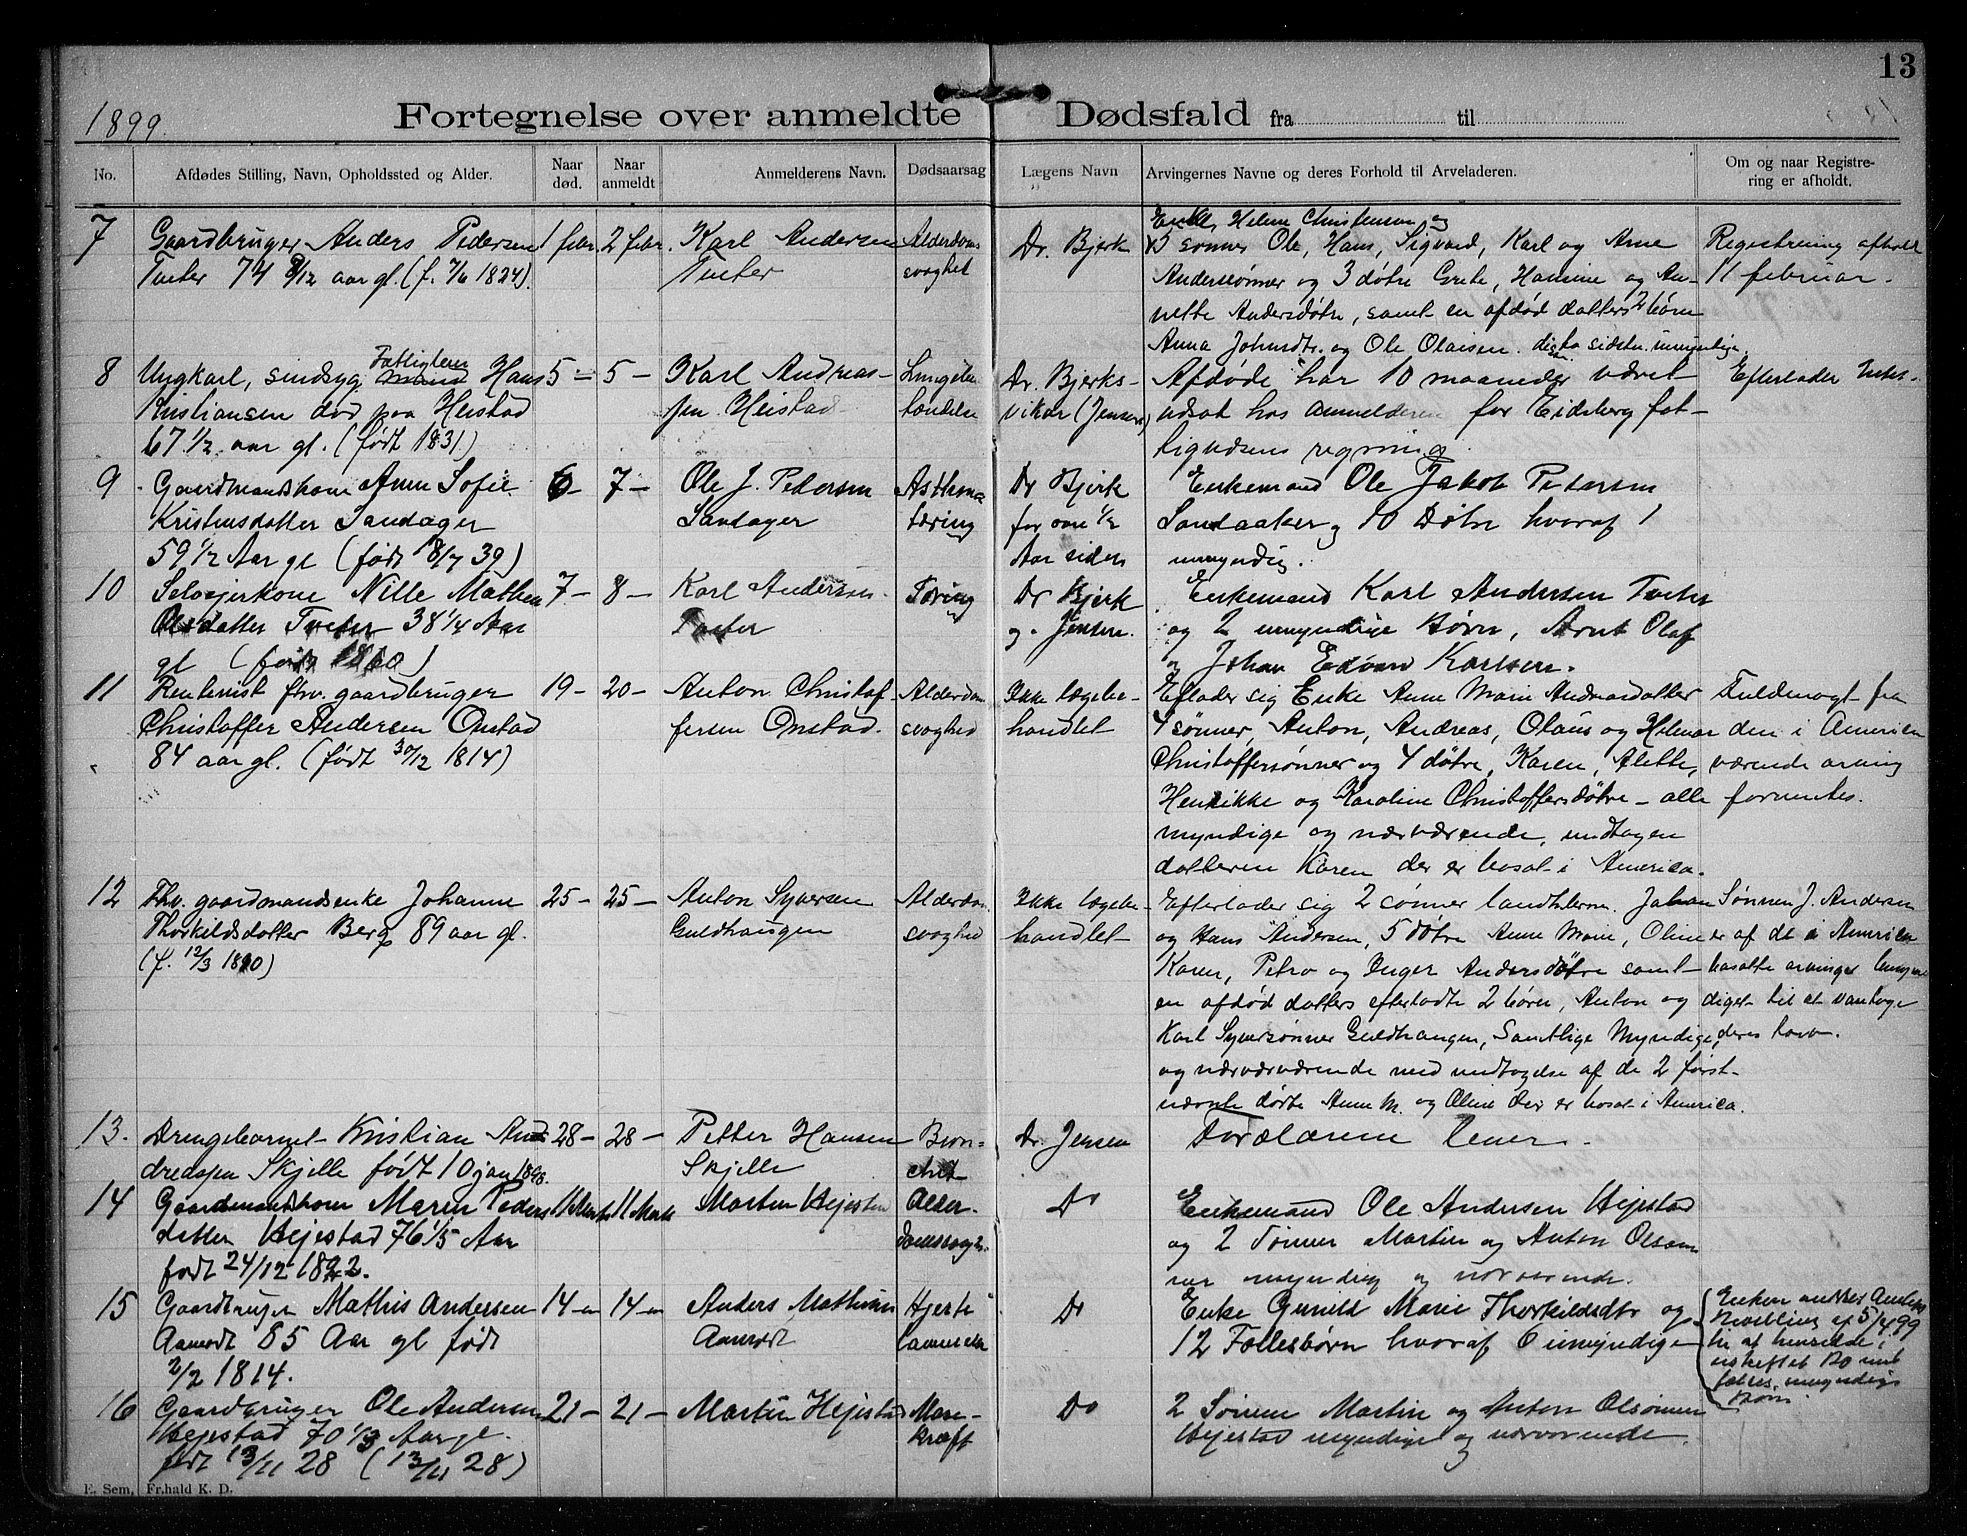 13
1899.
Fortegnelse over anmeldte Dødsfald fra til
No.
Afdødes Stilling, Navn, Opholdssted og Alder.
Naar død.
Naar anmeldt
Anmelderens Navn.
Dødsaarsag
Lægens Navn
Arvingernes Navne og deres Forhold til Arveladeren.
Om og naar Registrering er afholdt.
7
Gaardbruger Anders Pedersen
Tveter 74 8/12 aar gl. (f. 7/6 1824).
1 febr.
2 febr.
Karl Andersen
Tveter
Alderdoms
svaghet
Dr. Bjerk
Enke, Helene Christensen og
5 sønner Ole, Hans, Sigvard, Karl og Arne
Anderssønner og 3 døtre Grete, Hansine og An-
nette Andersdøtre, samt en afdød datters 2 børn
Anna Johnsdtr. og Ole Olaisen. disse to sidste umyndige.
Registrering afholdt
11 februar.
8
Ungkarl, sindsyg Fattiglem Hans
Kristiansen død paa Heistad
67 1/2 aar gl. (født 1831)
5 —
5 —
Karl Andreas-
sen Heistad
Lungebe-
tændelse
Dr. Bjerks
vikar (Jensen)
Afdøde har 10 maaneder været
udsat hos anmelderen for Eidsberg fat-
tigvæsens regning.
Efterlader Intet.
9
Gaardmandskone Anne Sofie
Kristensdatter Sandager
59 1/2 Aar gl (født 18/7 39)
6 —
7 —
Ole J. Petersen
Sandager
Asthma
tæring
Dr Bjerk
for ca 1/2
Aar siden
Enkemand Ole Jakob Petersen
Sandaaker og 10 Døtre hvoraf 1
umyndig.
10
Selveierkone Nille Mathea
Olsdatter Tveter 38 1/4 Aar
gl (født 1860)
7 —
8 —
Karl Andersen
Tveter
Tæring
Dr Bjerk
og Jensen.
Enkemand Karl Andersen Tveter
og 2 umyndige Børn, Arnt Olaf
og Johan Edvard Karlsen.
11
Rentenist fhv. gaardbruger
Christoffer Andersen Onstad
84 aar gl. (født 30/12 1814)
19 —
20 —
Anton Christof-
fersen Onstad.
Alderdoms
svaghed
Ikke lægebe-
handlet
Eflader sig Enke Anne Marie Andreasdatter
4 sønner, Anton, Andreas, Olaus og Helmar
Christoffersønner og 4 døtre, Karen, Alette,
Henrikke og Karoline Christoffersdøtre — alle
myndige og nærværende, undtagen
datteren Karen der er bosat i Amerika.
Fuldmagt fra
den i Amerika
værende arving
forventes.
12
Fhv. gaardmandsenke Johanne
Thorkildsdatter Berg 89 aar gl.
(f. 12/3 1810)
25 —
25 —
Anton Syversen
Guldhaugen
Alderdoms
svaghed
Ikke lægebe-
handlet
Efterlader sig 2 sønner Johan
og Hans Andersen, 5 døtre Anne Marie, Oline
Karen, Petra og Inger Andersdøtre samt
en afdød datters efterladte 2 børn, Anton og
Karl Syversønner Guldhaugen, Samtlige Myndige,
og nærværværende med undtagelse af de 2 først-
nævnte døtre Anne M. og Oline der er bosat i Amerika.
Sønnen J. Andersen
er af de i Amerika
bosatte arvinger bemyn-
diget til at varetage
deres tarv.
13.
Drengebarnet Kristian And-
dredsen Skjelle født 10 jan 1898.
28 —
28 —
Petter Hansen
Skjelle
Bron-
chit
Dr. Jensen
Forælærene lever.
14
Gaardmandskone Maren Peders
datter Hejestad 76 1/5 Aar
født 24/12 1822.
11 Marts
11 Marts
Marten Hejestad
Alder-
domssvaghed.
Do
Enkemand Ole Andersen Hejestad
og 2 Sønner Martin og Anton Olsen
myndig og nærværende.
15
Gaardbruger Mathis Andersen
Aamodt 85 Aar gl født
2/2 1814.
14 —
14 —
Anders Mathisen
Aamodt
Hjerte
lammelse
Do
Enke Gunild Marie Thorkildsdtr og
12 Fællesbørn hvoraf 6 umyndige
Enken Amtets
Bevilling af 5/4 99
til at henside i
uskiftet Bo med
fælles umyndige
Børn.
16
Gaardbruger Ole Andersen
Hejestad 70 1/3 Aar gl.
født 13/11 28 (13/11 28)
21 —
21 —
Martin Hejestad
Mave-
kræft
Do
2 Sønner Martin og Anton Olsønner
Hejestad myndige og nærværende.
E. Sem, Fr.hald K. D.